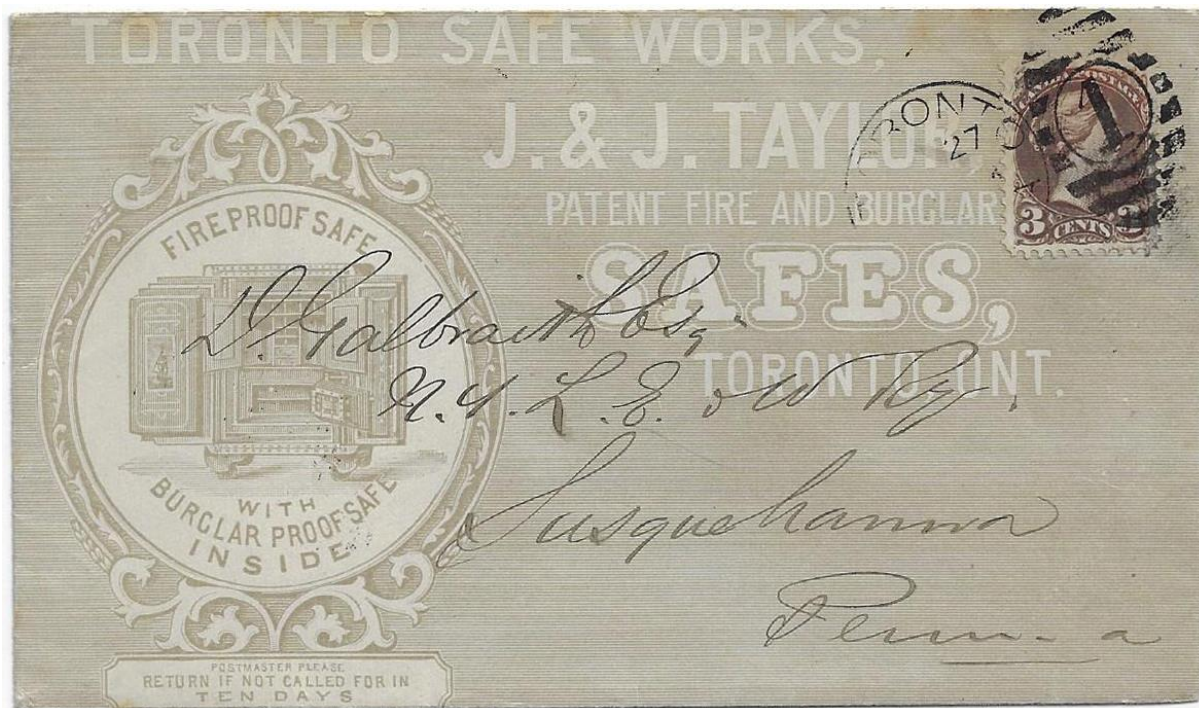 TORONTO SAFE WORKS,
J. & J. TAYLOR,
PATENT FIRE AND BURGLAR
SAFES,
TORONTO, ONT.
FIREPROOF SAFE
WITH
BURGLAR PROOF SAFE
INSIDE
POSTMASTER PLEASE
RETURN IF NOT CALLED FOR IN
TEN DAYS
TORONTO
27
1
POSTAGE
3 CENTS 3
D. Galbraith Esq.
N.Y. L. E. & W Ry.
Susquehanna
Penn-a